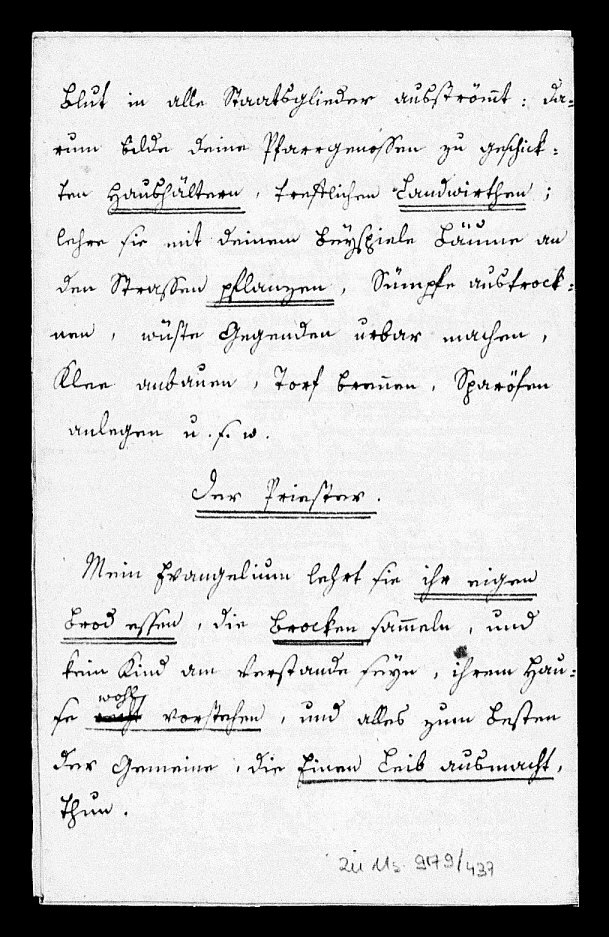 Blut in alle Staatsglieder ausströmt: da-
rum bilde deine Pfarrgenossen zu geschick-
ten Haushältern, trefflichen Landwirthen;
lehre sie mit deinem Beyspiele Bäume an
den Strassen pflanzen, Sümpfe austrock-
nen, wüste Gegenden urbar machen,
Klee anbauen, Torf brennen, Sparöfen
anlegen u. s. w.
Der Priester.
Mein Evangelium lehrt sie ihr eigen
Brod essen, die Brocken sammeln, und
kein Kind am Verstande seyn, ihrem Hau-
se wohl vorstehen, und alles zum Besten
der Gemeine, die Einen Leib ausmacht,
thun.
Zu Ms 9179/437